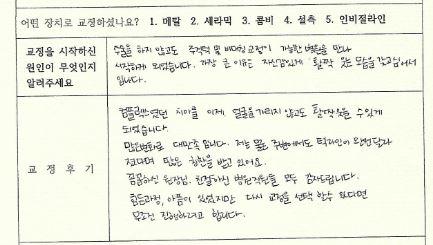 어떤 장치로 교정하셨나요? 1. 메탈 2. 세라믹 3. 콤비 4. 설측 5. 인비절라인
교정을 시작하신
원인이 무엇인지
알려주세요
수술을 하지 않고도 주걱턱 및 비대칭 교정이 가능한 병원을 만나
시작하게 되었습니다. 가장 큰 이유는 자신있게 활짝 웃는 모습을 갖고싶어서
입니다.
교 정 후 기
컴플렉스였던 치아를 이제 얼굴을 가리지 않고도 활짝 웃을 수 있게
되었습니다.
많은변화로 대만족 입니다. 저는 물론 주변에서도 턱라인이 완전달라
졌다며 많은 칭찬을 받고 있어요.
꼼꼼하신 원장님, 친절하신 병원직원들 모두 감사드립니다.
힘든과정, 아픔이 있었지만 다시 교정을 선택 한다면
무조건 진행하려고 합니다.